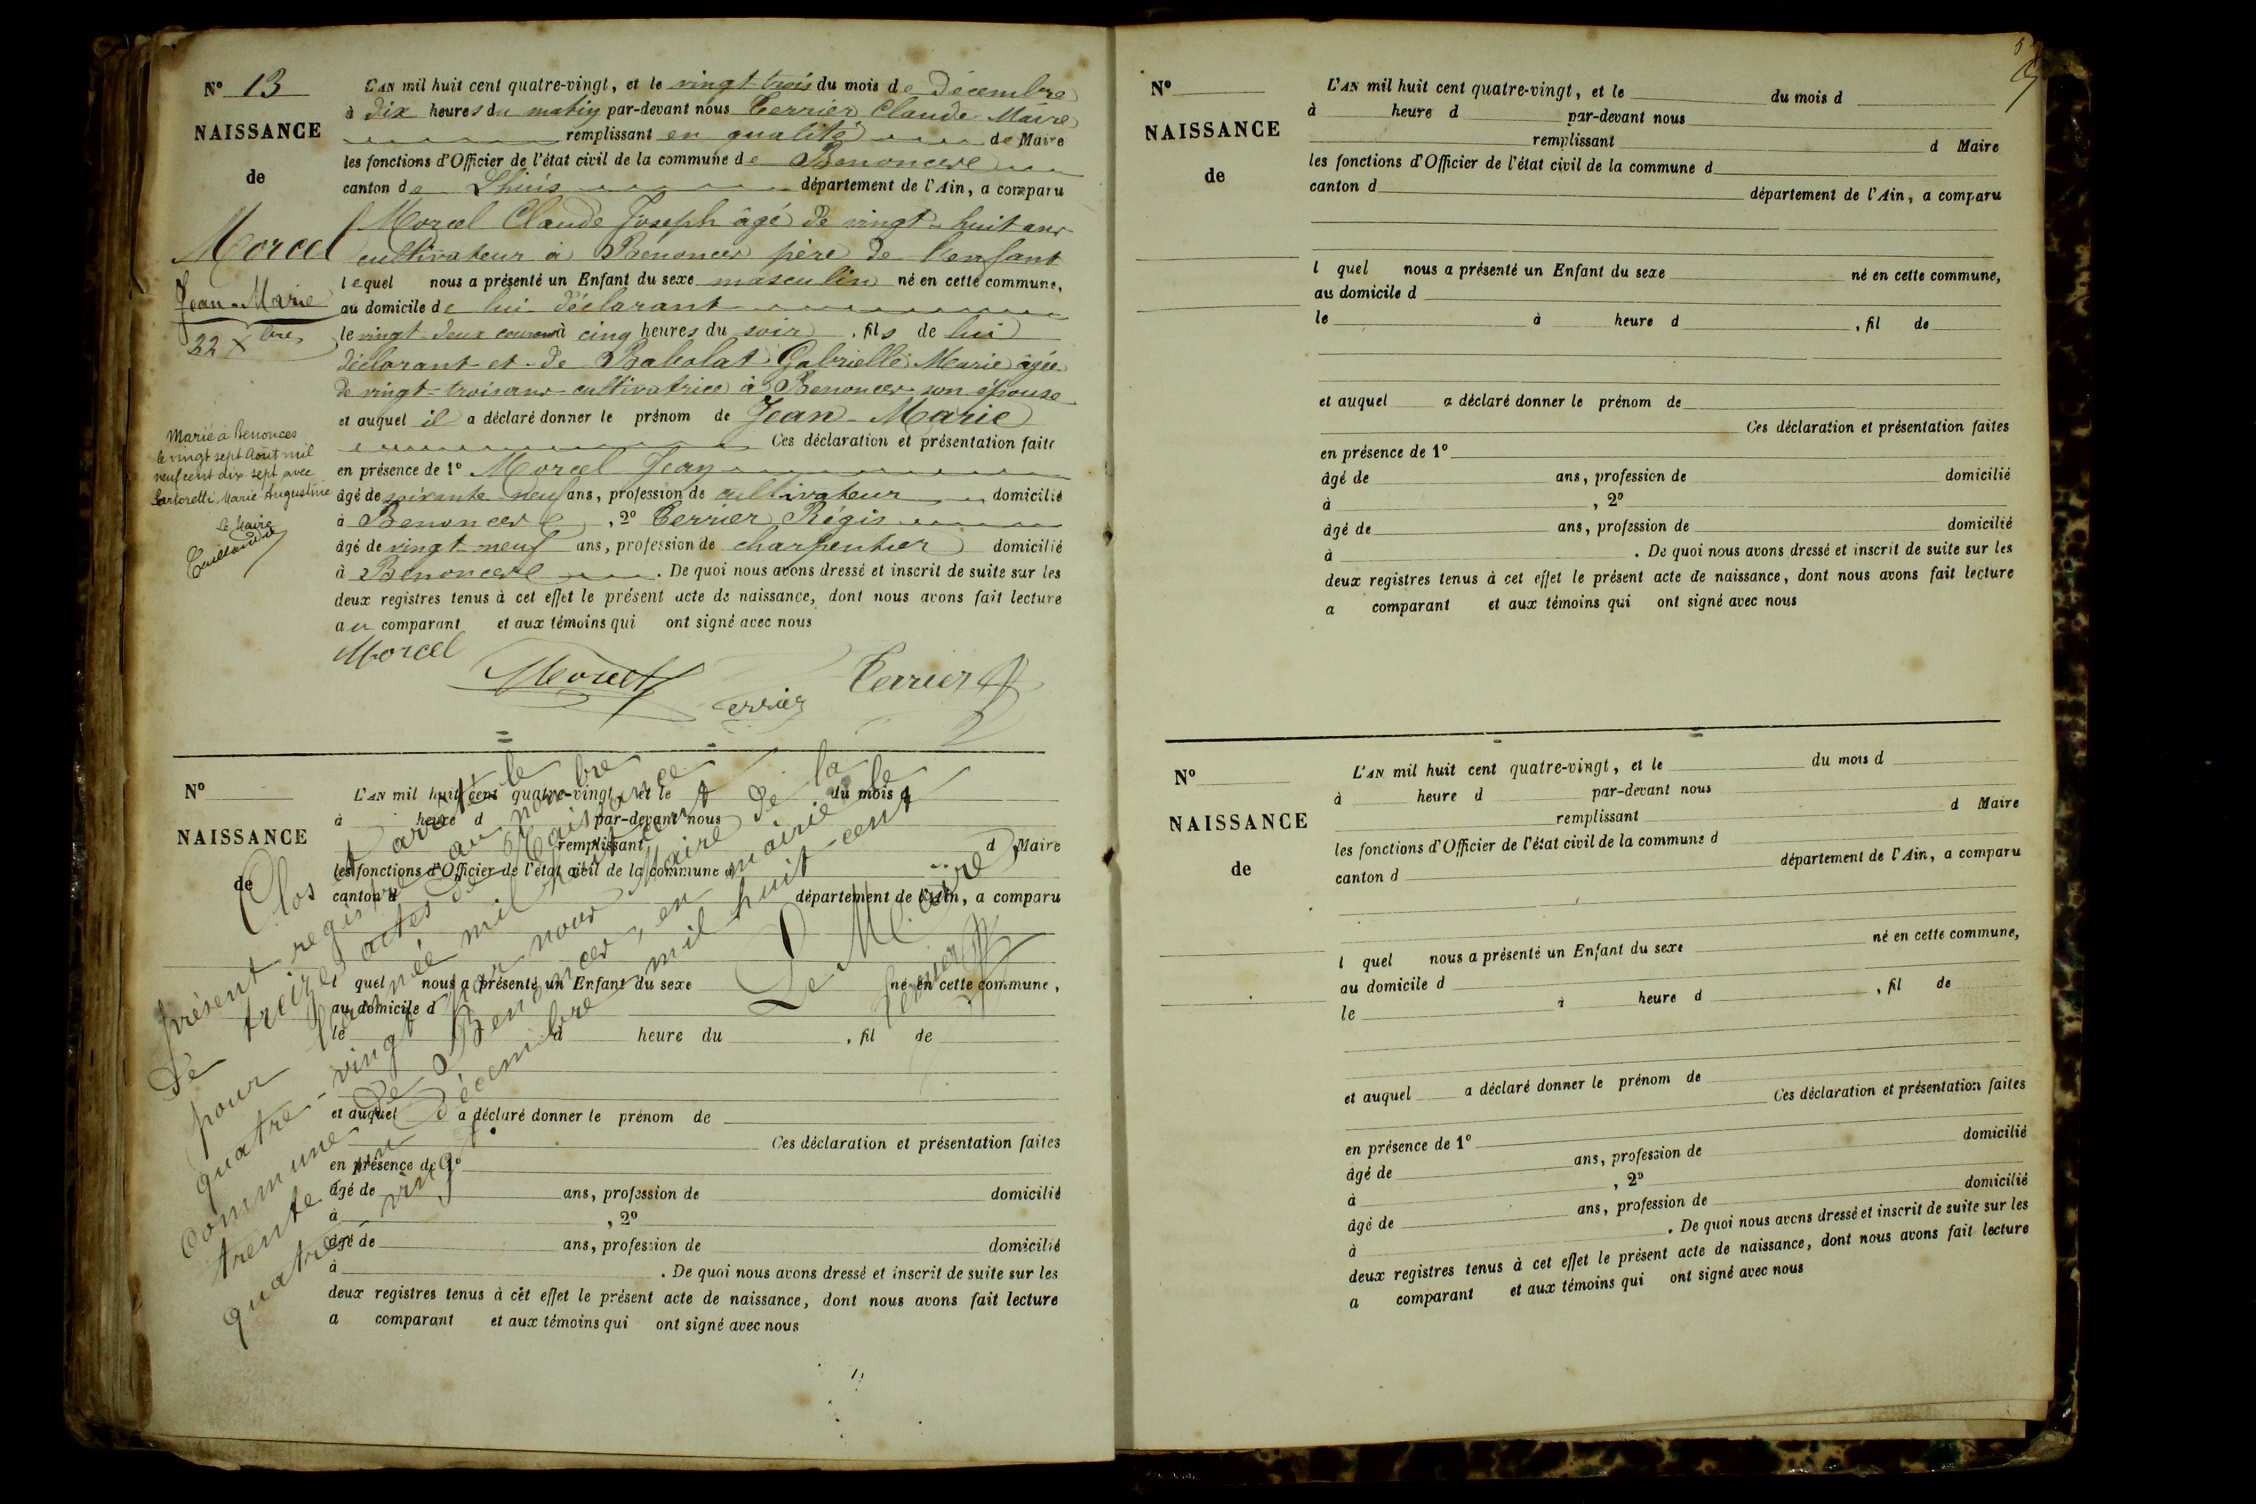 N° 13
NAISSANCE
de
Morcel
Jean-Marie
22 Xbre
Marié à Benonces
le vingt sept Août mil
neuf cent dix sept avec
Sartorelli Marie Augustine
Le Maire
L'AN mil huit cent quatre-vingt, et le vingt-trois du mois de Décembre
à dix heures du matin par-devant nous Terrier Claude Maire
remplissant en qualité de Maire
les fonctions d'Officier de l'état civil de la commune de Benonces
canton de Lhuis département de l'Ain, a comparu
Morcel Claude Joseph âgé de vingt-huit ans
cultivateur à Benonces père de l'enfant
lequel nous a présenté un Enfant du sexe masculin né en cette commune,
au domicile de lui déclarant
le vingt-deux courant à cinq heures du soir, fils de lui
déclarant et de Babolat Gabrielle Marie âgée
de vingt-trois ans cultivatrice à Benonces son épouse
et auquel il a déclaré donner le prénom de Jean-Marie
Ces déclaration et présentation faite
en présence de 1° Morcel Jean
âgé de soixante neuf ans, profession de cultivateur domicilié
à Benonces, 2° Terrier Régis
âgé de vingt-neuf ans, profession de charpentier domicilié
à Benonces. De quoi nous avons dressé et inscrit de suite sur les
deux registres tenus à cet effet le présent acte de naissance, dont nous avons fait lecture
au comparant et aux témoins qui ont signé avec nous
Morcel
Morcel Terrier Terrier
N°
NAISSANCE
de
L'AN mil huit cent quatre-vingt, et le du mois d
à heure d par-devant nous
remplissant d Maire
les fonctions d'Officier de l'état civil de la commune d
canton d département de l'Ain, a comparu
quel nous a présenté un Enfant du sexe né en cette commune,
au domicile d
le à heure du , fil de
et auquel a déclaré donner le prénom de
Ces déclaration et présentation faites
en présence de 1°
âgé de ans, profession de domicilié
à , 2°
âgé de ans, profession de domicilié
à . De quoi nous avons dressé et inscrit de suite sur les
deux registres tenus à cet effet le présent acte de naissance, dont nous avons fait lecture
a comparant et aux témoins qui ont signé avec nous
Clos et arrêté le
présent registre au nombre
de treize actes de Naissance
pour l'année mil huit cent
quatre-vingt par nous Maire de la
commune de Benonces, en mairie le
trente un décembre mil huit-cent
quatre-vingt.
Le Maire
Terrier
N°
NAISSANCE
de
L'AN mil huit cent quatre-vingt, et le du mois d
à heure d par-devant nous
remplissant d Maire
les fonctions d'Officier de l'état civil de la commune d
canton d département de l'Ain, a comparu
l quel nous a présenté un Enfant du sexe né en cette commune,
au domicile d
le à heure d , fil de
et auquel a déclaré donner le prénom de
Ces déclaration et présentation faites
en présence de 1°
âgé de ans, profession de domicilié
à , 2°
âgé de ans, profession de domicilié
à . De quoi nous avons dressé et inscrit de suite sur les
deux registres tenus à cet effet le présent acte de naissance, dont nous avons fait lecture
a comparant et aux témoins qui ont signé avec nous
N°
NAISSANCE
de
L'AN mil huit cent quatre-vingt, et le du mois d
à heure d par-devant nous
remplissant d Maire
les fonctions d'Officier de l'état civil de la commune d
canton d département de l'Ain, a comparu
l quel nous a présenté un Enfant du sexe né en cette commune,
au domicile d
le à heure d , fil de
et auquel a déclaré donner le prénom de
Ces déclaration et présentation faites
en présence de 1°
âgé de ans, profession de domicilié
à , 2°
âgé de ans, profession de domicilié
à . De quoi nous avons dressé et inscrit de suite sur les
deux registres tenus à cet effet le présent acte de naissance, dont nous avons fait lecture
a comparant et aux témoins qui ont signé avec nous